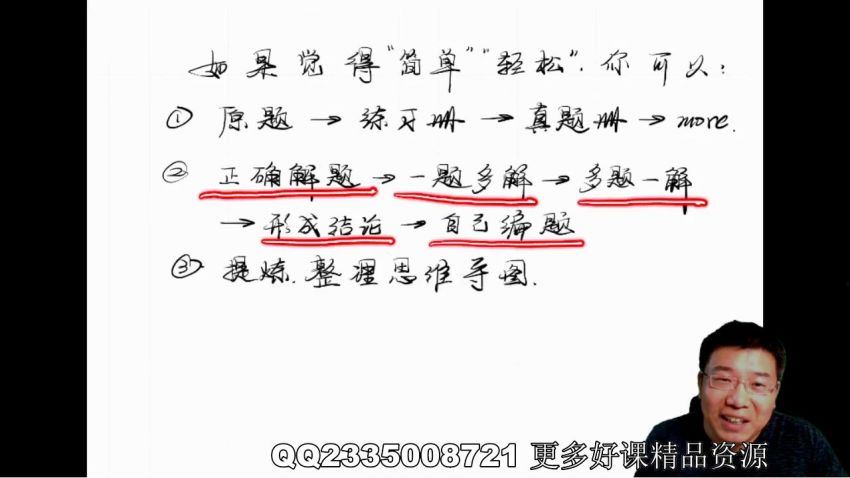 如果觉得“简单”“轻松”，你可以：
① 原题 → 练习册 → 真题册 → more.
② 正确解题 → 一题多解 → 多题一解
→ 形成结论 → 自己编题
③ 提炼.整理思维导图.
QQ2335008721 更多好课精品资源